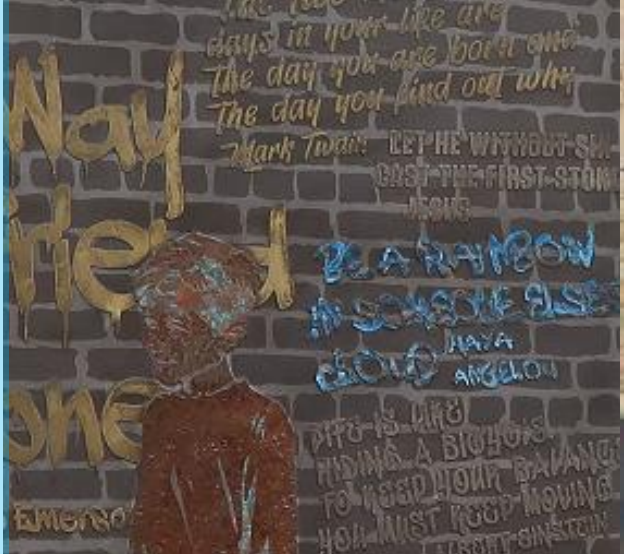 days in your life are
the day you are born and
The day you find out why
Mark Twain
LET HE WITHOUT SIN
CAST THE FIRST STON
JESUS
Way
Friend
BE A RAINBOW
IN SOMEONE ELSE
CLOUD MAYA
ANGELOU
one
LIFE IS LIKE
RIDING A BICYCLE.
TO KEEP YOUR BALANC
YOU MUST KEEP MOVING
ALBERT EINSTEIN